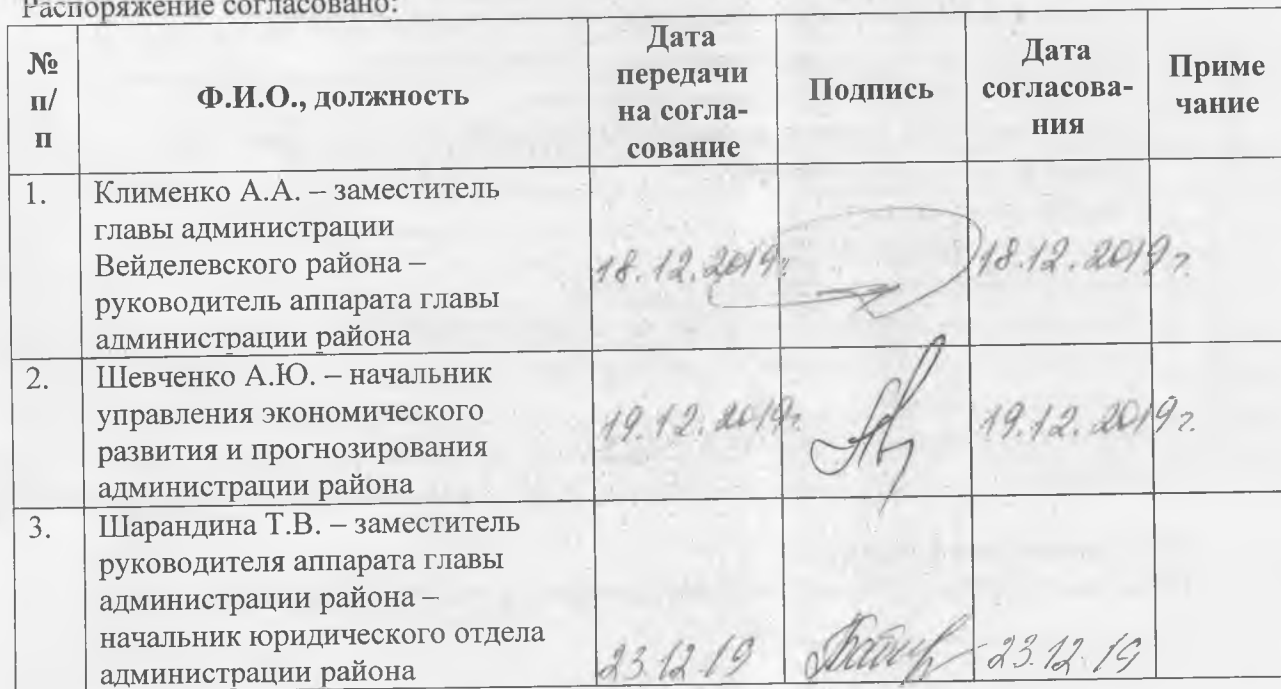 Распоряжение согласовано:
№ п/п
Ф.И.О., должность
Дата передачи на согла-сование
Подпись
Дата согласова-ния
Приме чание
1.
Клименко А.А. – заместитель
главы администрации
Вейделевского района –
руководитель аппарата главы
администрации района
18.12.2019г.
18.12.2019г.
2.
Шевченко А.Ю. – начальник
управления экономического
развития и прогнозирования
администрации района
19.12.2019г.
19.12.2019г.
3.
Шарандина Т.В. – заместитель
руководителя аппарата главы
администрации района –
начальник юридического отдела
администрации района
23.12.19
23.12.19